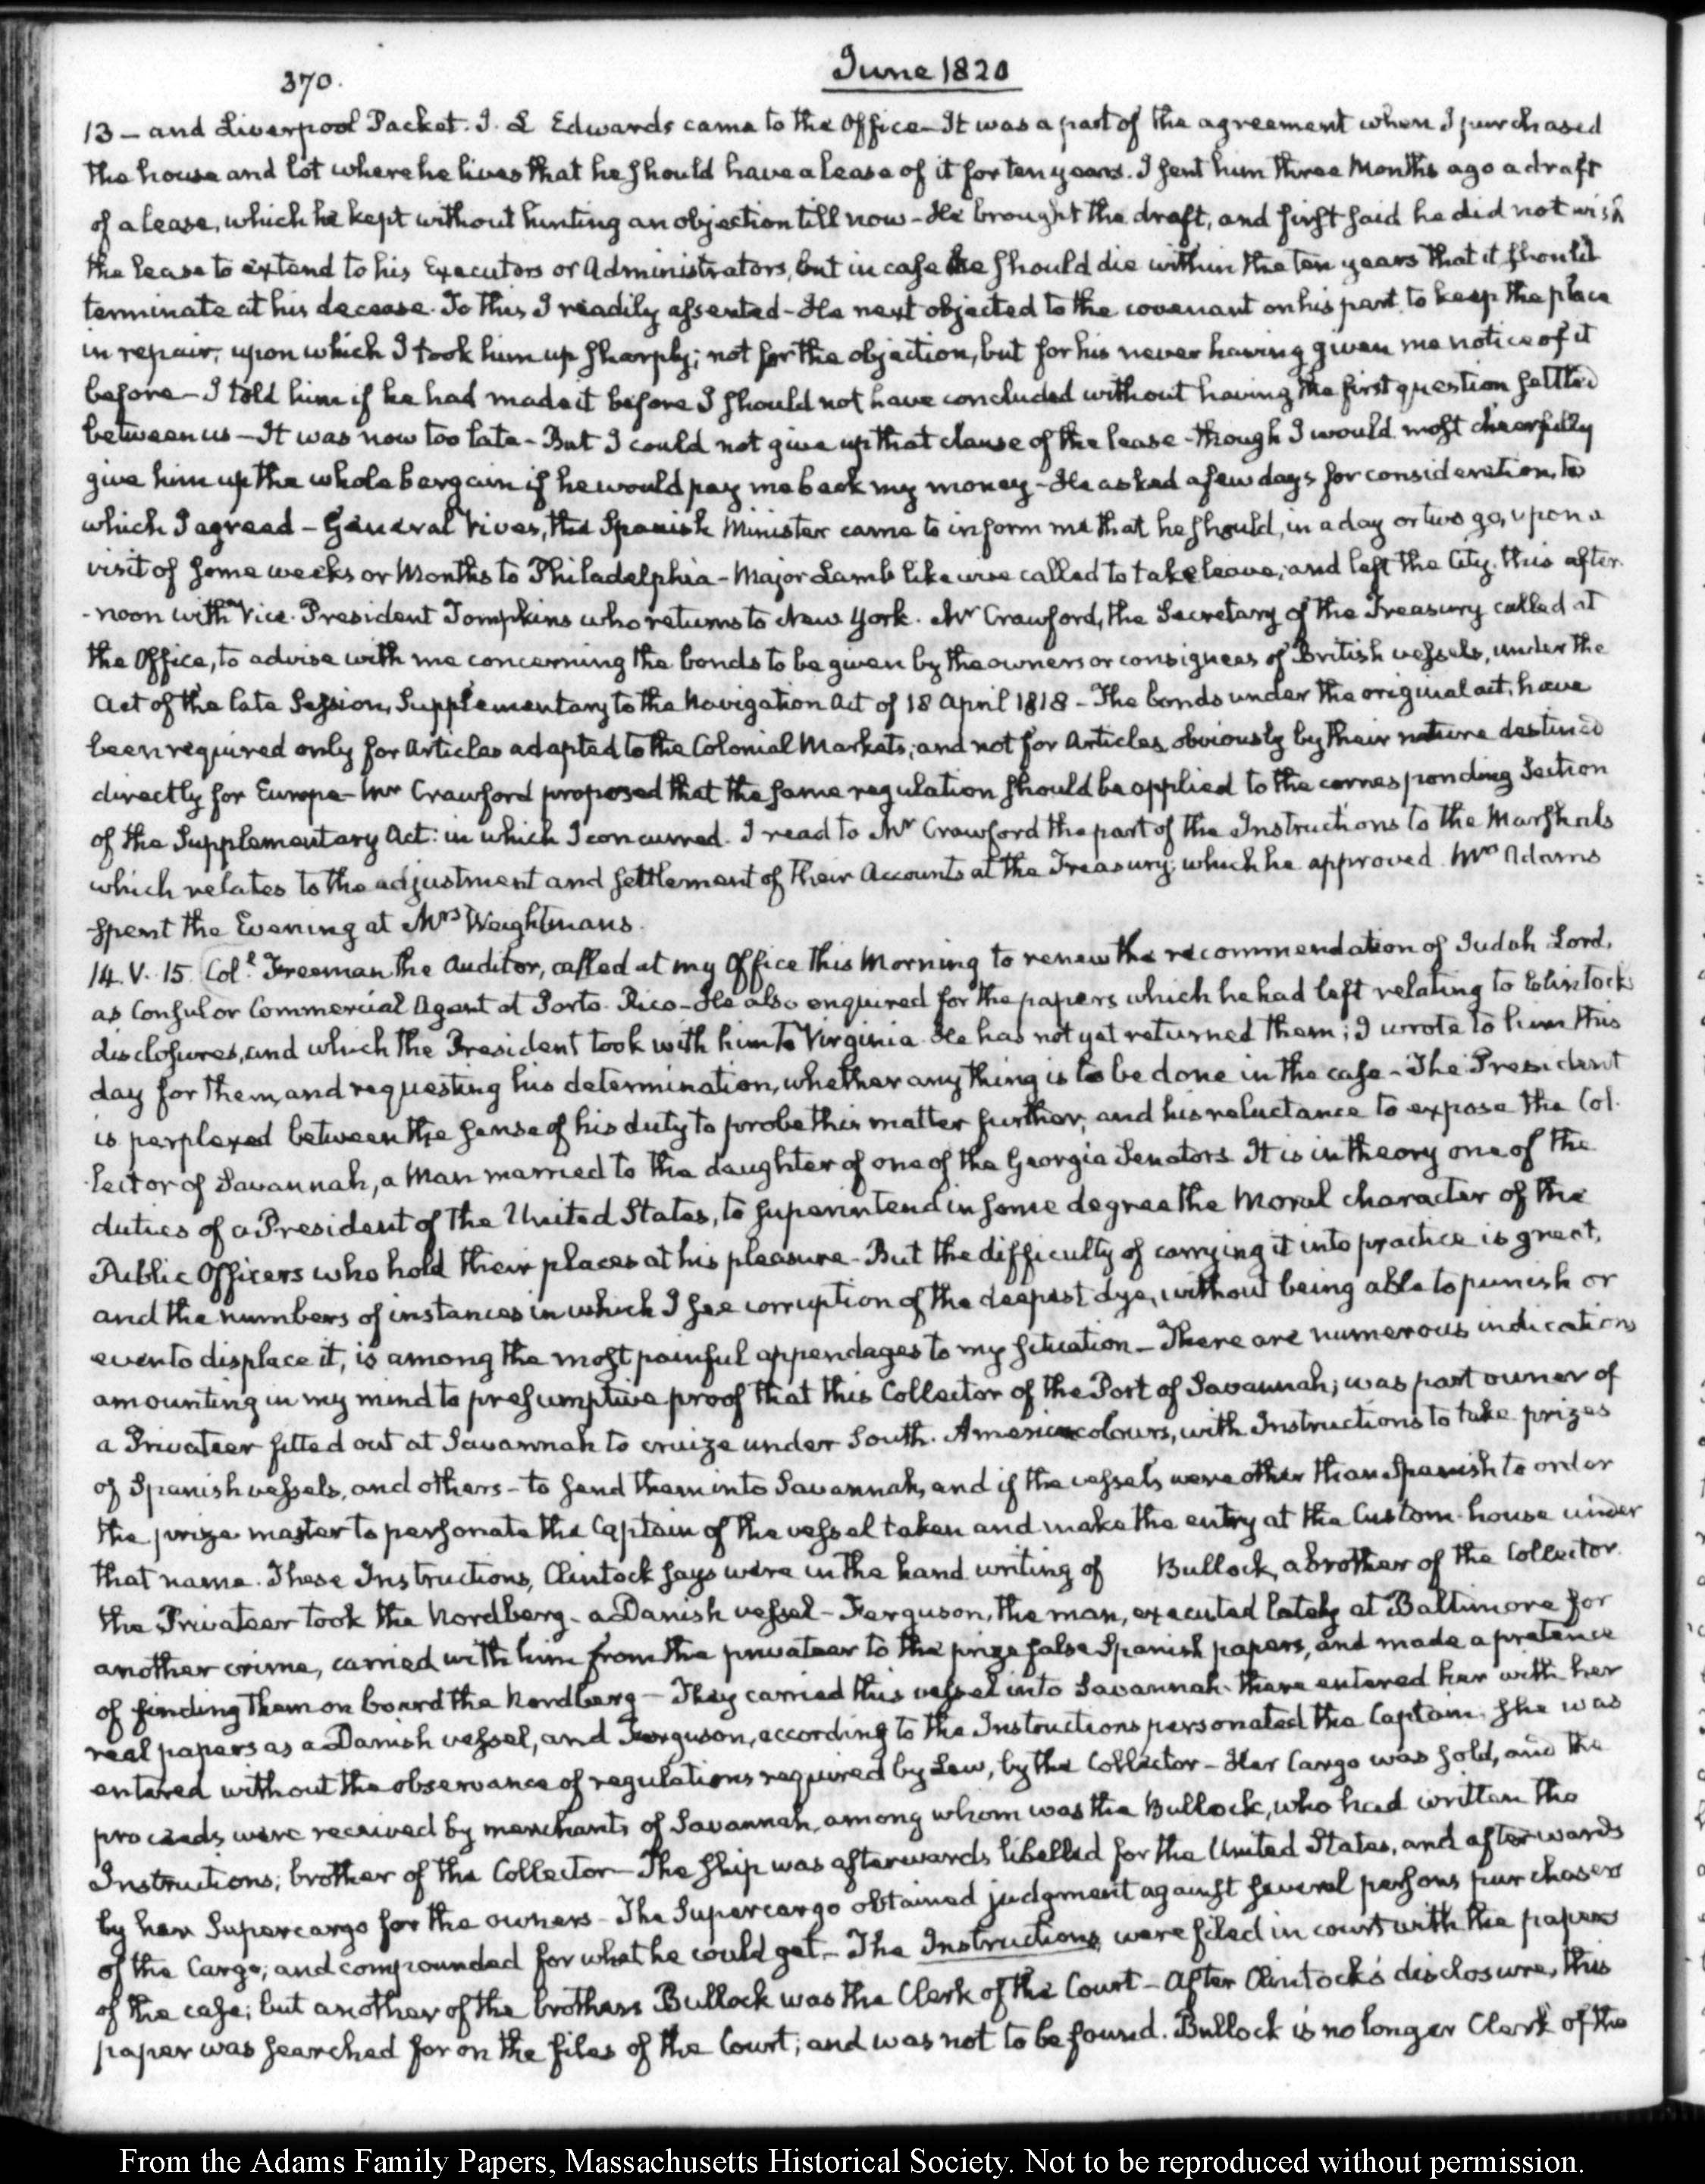 370.
June 1820
13 - and Liverpool Packet. J. L Edwards came to the Office - It was a part of the agreement when I purchased
the house and lot where he lives that he should have a lease of it for ten years. I sent him three Months ago a draft
of a lease, which he kept without hinting an objection till now - He brought the draft, and first said he did not wish
the lease to extend to his Executors or Administrators, but in case he should die within the ten years that it should
terminate at his decease. To this I readily assented - He next objected to the covenant on his part to keep the place
in repair; upon which I took him up sharply; not for the objection, but for his never having given me notice of it
before - I told him if he had made it before I should not have concluded without having the first question settled
between us - It was now too late - But I could not give up that clause of the lease - though I would most cheerfully
give him up the whole bargain if he would pay me back my money - He asked a few days for consideration, to
which I agreed - General Vives, the Spanish Minister came to inform me that he should, in a day or two go, upon a
visit of some weeks or Months to Philadelphia - Major Lamb likewise called to take leave, and left the City this after-
-noon with Vice-President Tompkins who returns to New York. Mr Crawford, the Secretary of the Treasury called at
the Office, to advise with me concerning the bonds to be given by the owners or consignees of British vessels, under the
Act of the late Session, Supplementary to the Navigation Act of 18 April 1818 - The bonds under the original act, have
been required only for Articles adapted to the Colonial Markets; and not for Articles obviously by their nature destined
directly for Europe - Mr Crawford proposed that the same regulation should be applied to the corresponding Section
of the Supplementary Act: in which I concurred. I read to Mr Crawford the part of the Instructions to the Marshals
which relates to the adjustment and settlement of their Accounts at the Treasury; which he approved. Mrs Adams
spent the Evening at Mrs Weightmans.
14. V. 15. Coll. Freeman the Auditor, called at my Office this Morning to renew the recommendation of Judah Lord,
as Consul or Commercial Agent at Porto-Rico - He also enquired for the papers which he had left relating to Clintock's
disclosures, and which the President took with him to Virginia. He has not yet returned them; I wrote to him this
day for them, and requesting his determination, whether any thing is to be done in the case - The President
is perplexed between the sense of his duty to probe this matter further, and his reluctance to expose the Col-
-lector of Savannah, a Man married to the daughter of one of the Georgia Senators. It is in theory one of the
duties of a President of the United States, to superintend in some degree the Moral character of the
Public Officers who hold their places at his pleasure - But the difficulty of carrying it into practice is great,
and the numbers of instances in which I see corruption of the deepest dye, without being able to punish or
even to displace it, is among the most painful appendages to my situation - There are numerous indications
amounting in my mind to presumptive proof that this Collector of the Port of Savannah, was part owner of
a Privateer fitted out at Savannah to cruize under South-American colours, with Instructions to take prizes
of Spanish vessels, and others - to send them into Savannah, and if the vessels were other than Spanish to order
the prize master to personate the Captain of the vessel taken and make the entry at the Custom-house under
that name. These Instructions, Clintock says were in the hand writing of Bullock, a brother of the Collector.
the Privateer took the Nordberg - a Danish vessel - Ferguson, the man, executed lately at Baltimore for
another crime, carried with him from the privateer to the prize false Spanish papers, and made a pretence
of finding them on board the Nordberg - They carried this vessel into Savannah - there entered her with her
real papers as a Danish vessel, and Ferguson, according to the Instructions personated the Captain. She was
entered without the observance of regulations required by Law, by the Collector - Her Cargo was sold, and the
proceeds were received by merchants of Savannah, among whom was the Bullock, who had written the
Instructions; brother of the Collector - The ship was afterwards libelled for the United States, and afterwards
by her Supercargo for the owners - The Supercargo obtained judgment against several persons purchasers
of the Cargo; and compounded for what he could get - The Instructions were filed in court with the papers
of the case; but another of the brothers Bullock was the Clerk of the Court - After Clintock's disclosure, this
paper was searched for on the files of the Court; and was not to be found. Bullock is no longer Clerk of the
From the Adams Family Papers, Massachusetts Historical Society. Not to be reproduced without permission.